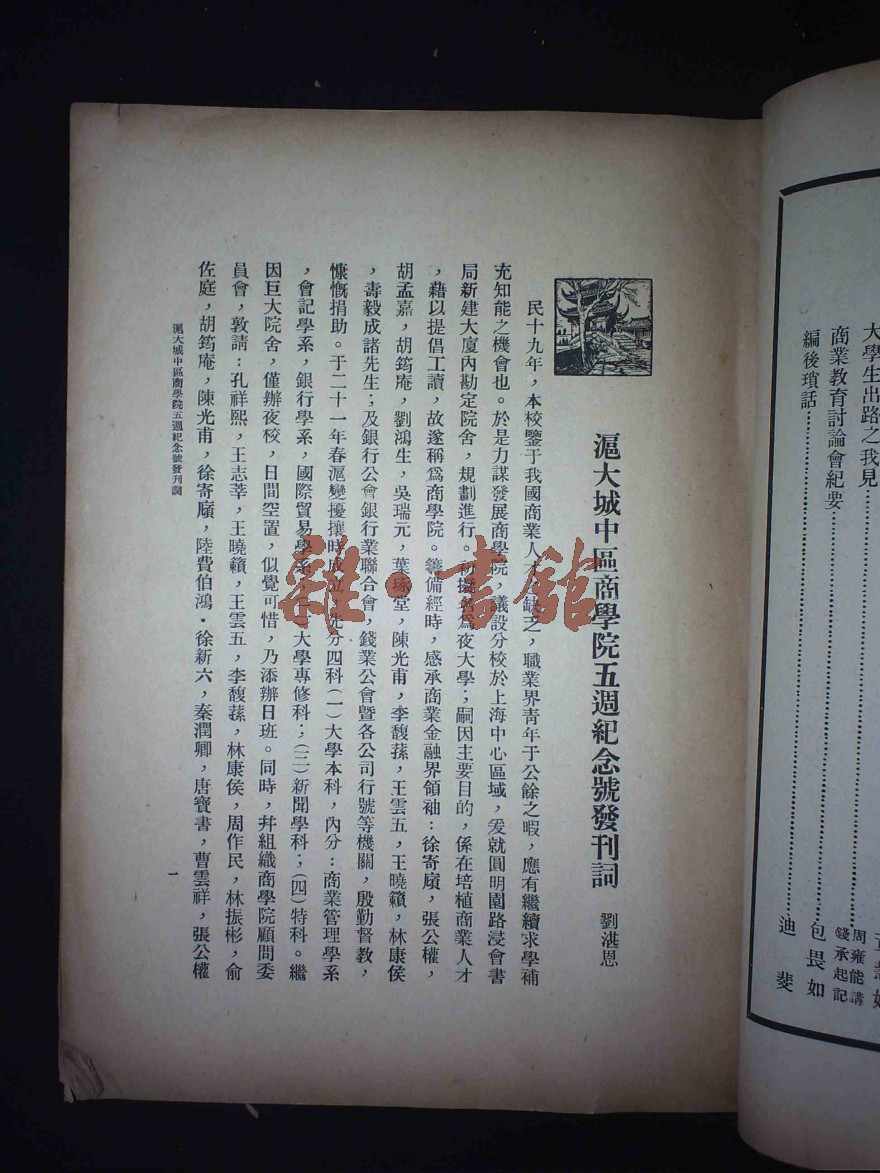 大學生出路之我見
商業教育討論會紀要
周雍能講
錢承起記
包畏如
編後瑣話
迪斐
滬大城中區商學院五週紀念號發刊詞
劉湛恩
民十九年，本校鑒于我國商業人才缺乏，職業界青年于公餘之暇，應有繼續求學補
充知能之機會也。於是力謀發展商學院，議設分校於上海中心區域，爰就圓明園路浸會書
局新建大廈內勘定院舍，規劃進行。初擬名爲夜大學；嗣因主要目的，係在培植商業人才
，藉以提倡工讀，故遂稱爲商學院。籌備經時，感承商業金融界領袖：徐寄廎，張公權，
胡孟嘉，胡筠庵，劉鴻生，吳瑞元，葉琢堂，陳光甫，李馥蓀，王雲五，王曉籟，林康侯
，壽毅成諸先生；及銀行公會銀行業聯合會，錢業公會暨各公司行號等機關，殷勤督教，
慷慨捐助。于二十一年春滬變擾攘時成立，先分四科(一)大學本科，內分：商業管理學系
，會記學系，銀行學系，國際貿易學系；(二)大學專修科；(三)新聞學科；(四)特科。繼
因巨大院舍，僅辦夜校，日間空置，似覺可惜，乃添辦日班。同時，并組織商學院顧問委
員會，敦請：孔祥熙，王志莘，王曉籟，王雲五，李馥蓀，林康侯，周作民，林振彬，俞
佐庭，胡筠庵，陳光甫，徐寄廎，陸費伯鴻・徐新六，秦潤卿，唐寶書，曹雲祥，張公權
滬大城中區商學院五週紀念號發刊詞
一
雜・書館